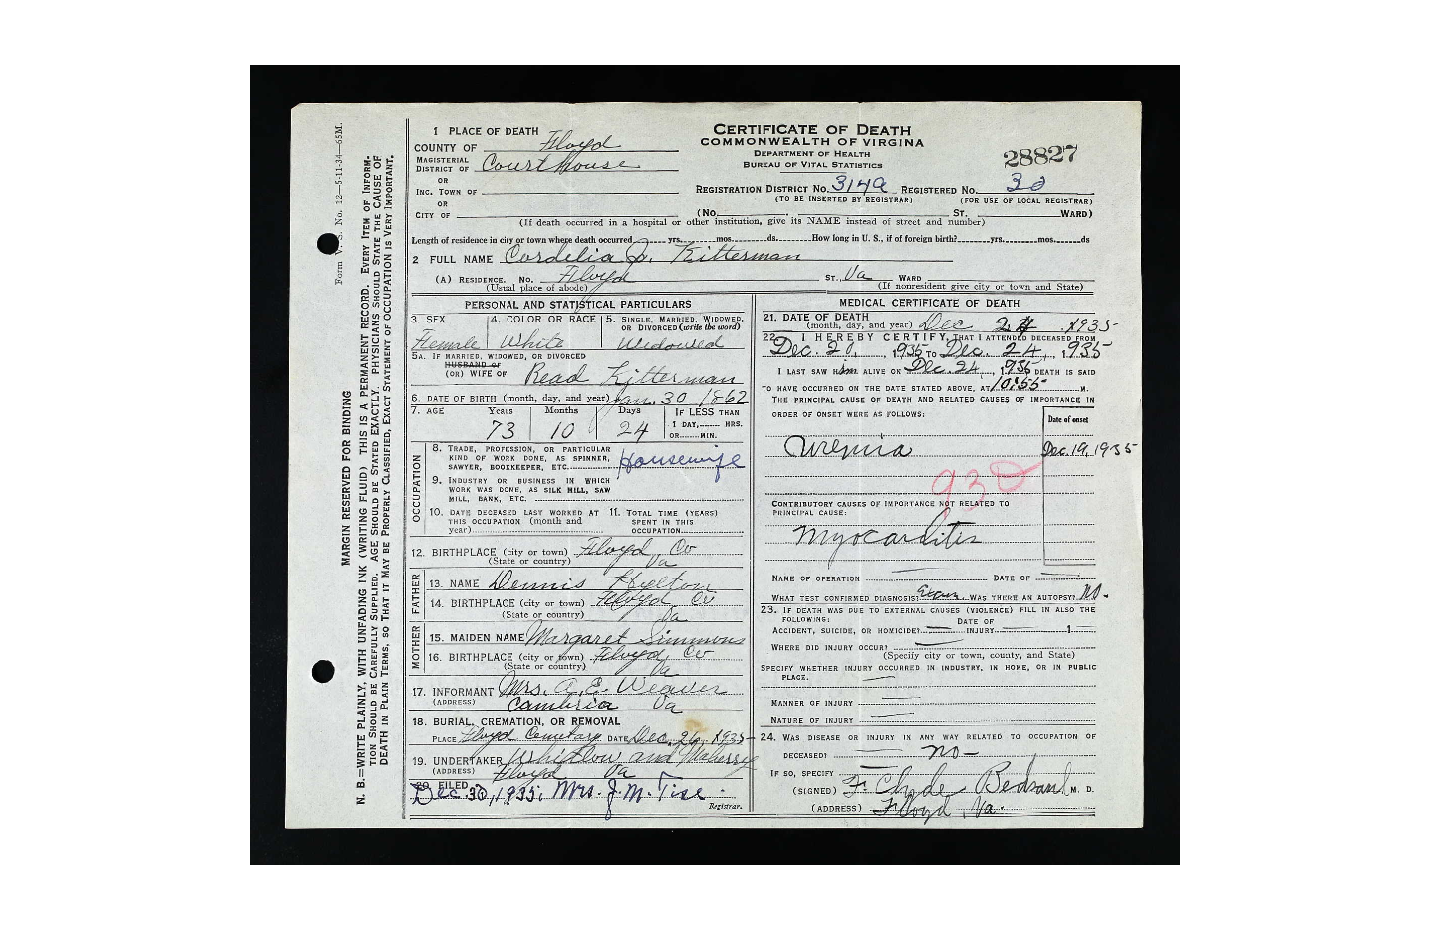 Form V. S. No. 12—5-11-34—65M.
MARGIN RESERVED FOR BINDING
N. B.—WRITE PLAINLY, WITH UNFADING INK (WRITING FLUID) THIS IS A PERMANENT RECORD. EVERY ITEM OF INFORM-
TION SHOULD BE CAREFULLY SUPPLIED. AGE SHOULD BE STATED EXACTLY. PHYSICIANS SHOULD STATE THE CAUSE OF
DEATH IN PLAIN TERMS, SO THAT IT MAY BE PROPERLY CLASSIFIED. EXACT STATEMENT OF OCCUPATION IS VERY IMPORTANT.
CERTIFICATE OF DEATH
COMMONWEALTH OF VIRGINIA
DEPARTMENT OF HEALTH
BUREAU OF VITAL STATISTICS
28827
1 PLACE OF DEATH
COUNTY OF Floyd
MAGISTERIAL DISTRICT OF Courthouse
OR
INC. TOWN OF
OR
CITY OF
REGISTRATION DISTRICT NO. 3149 REGISTERED NO. 30
(TO BE INSERTED BY REGISTRAR) (FOR USE OF LOCAL REGISTRAR)
(No. ST. WARD)
(If death occurred in a hospital or other institution, give its NAME instead of street and number)
Length of residence in city or town where death occurred yrs. mos. ds. How long in U. S., if of foreign birth? yrs. mos. ds
2 FULL NAME Cordelia J. Kitterman
(A) RESIDENCE. No. Floyd ST. Va WARD
(Usual place of abode) (If nonresident give city or town and State)
PERSONAL AND STATISTICAL PARTICULARS
3 SEX Female
4. COLOR OR RACE White
5. SINGLE, MARRIED, WIDOWED, OR DIVORCED (write the word) Widowed
5A. IF MARRIED, WIDOWED, OR DIVORCED
HUSBAND OF
(OR) WIFE OF Read Kitterman
6. DATE OF BIRTH (month, day, and year) Jan. 30 1862
7. AGE Years Months Days IF LESS THAN
73 10 24 1 DAY, HRS.
OR MIN.
OCCUPATION
8. TRADE, PROFESSION, OR PARTICULAR
KIND OF WORK DONE, AS SPINNER,
SAWYER, BOOKKEEPER, ETC. Housewife
9. INDUSTRY OR BUSINESS IN WHICH
WORK WAS DONE, AS SILK MILL, SAW
MILL, BANK, ETC.
10. DATE DECEASED LAST WORKED AT
THIS OCCUPATION (month and
year)
11. TOTAL TIME (YEARS)
SPENT IN THIS
OCCUPATION
12. BIRTHPLACE (city or town) Floyd Co
(State or country) Va
FATHER
13. NAME Dennis Hylton
14. BIRTHPLACE (city or town) Floyd Co
(State or country) Va
MOTHER
15. MAIDEN NAME Margaret Simmons
16. BIRTHPLACE (city or town) Floyd Co
(State or country) Va
17. INFORMANT Mrs. A. E. Weaver
(ADDRESS) Cambria Va
18. BURIAL, CREMATION, OR REMOVAL
PLACE Floyd Cemetary DATE Dec. 26, 1935
19. UNDERTAKER Whitlow and Maberry
(ADDRESS) Floyd Va
20. FILED Dec. 30, 1935. Mrs. J. M. Tise.
Registrar.
MEDICAL CERTIFICATE OF DEATH
21. DATE OF DEATH
(month, day, and year) Dec 24 1935
22. I HEREBY CERTIFY, THAT I ATTENDED DECEASED FROM
Dec. 20, 1935 TO Dec. 24, 1935
I LAST SAW H im ALIVE ON Dec. 24, 1935 DEATH IS SAID
TO HAVE OCCURRED ON THE DATE STATED ABOVE, AT 10:55 M.
THE PRINCIPAL CAUSE OF DEATH AND RELATED CAUSES OF IMPORTANCE IN
ORDER OF ONSET WERE AS FOLLOWS:
Date of onset
Uremia Dec. 19, 1935
930
CONTRIBUTORY CAUSES OF IMPORTANCE NOT RELATED TO
PRINCIPAL CAUSE:
Myocarditis
NAME OF OPERATION DATE OF
WHAT TEST CONFIRMED DIAGNOSIS? Exam WAS THERE AN AUTOPSY? No.
23. IF DEATH WAS DUE TO EXTERNAL CAUSES (VIOLENCE) FILL IN ALSO THE
FOLLOWING:
DATE OF
ACCIDENT, SUICIDE, OR HOMICIDE? INJURY 1
WHERE DID INJURY OCCUR?
(Specify city or town, county, and State)
SPECIFY WHETHER INJURY OCCURRED IN INDUSTRY, IN HOME, OR IN PUBLIC
PLACE.
MANNER OF INJURY
NATURE OF INJURY
24. WAS DISEASE OR INJURY IN ANY WAY RELATED TO OCCUPATION OF
DECEASED? no
IF SO, SPECIFY
(SIGNED) F. Clyde Bedsaul M. D.
(ADDRESS) Floyd, Va.